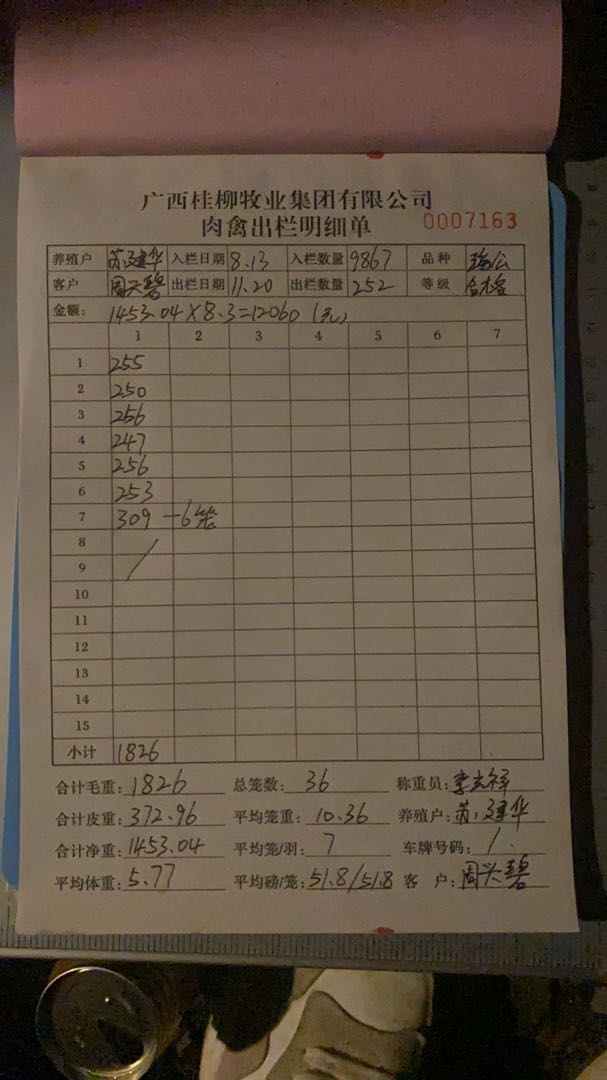 广西桂柳牧业集团有限公司
肉禽出栏明细单 0007163
养殖户 建华 入栏日期 8.13 入栏数量 9867 品种 瑶公
客户 周兴碧 出栏日期 11.20 出栏数量 252 等级 合格
金额: 1453.04×8.3=12060(元)
1 2 3 4 5 6 7
1 255
2 250
3 256
4 247
5 256
6 253
7 309 －6笼
8
9
10
11
12
13
14
15
小计 1826
合计毛重: 1826 总笼数: 36 称重员: 李
合计皮重: 372.96 平均笼重: 10.36 养殖户: 建华
合计净重: 1453.04 平均笼/羽: 7 车牌号码: 1.
平均体重: 5.77 平均磅/笼: 51.8/51.8 客户: 周兴碧